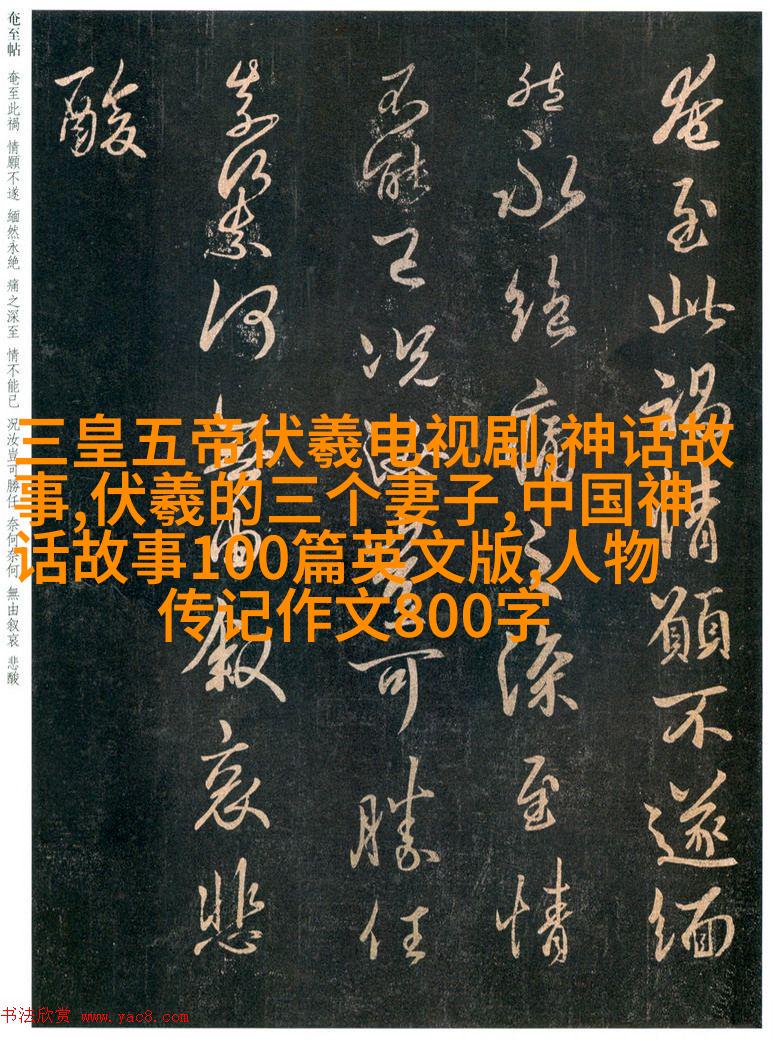 奄至帖 奄至此禍 情願不遂 緬然永絶 痛之深至 情不能已 况汝豈可勝任 奈何奈何 無由叙哀 悲酸
奄至此禍情願不遂緬
然永絶痛之深至情
不能已况汝豈可勝任
奈何奈何無由叙哀悲
酸
三皇五帝伏羲电视剧,神话故
事,伏羲的三个妻子,中国神
话故事100篇英文版,人物
传记作文800字
书法欣赏 www.yac8.com